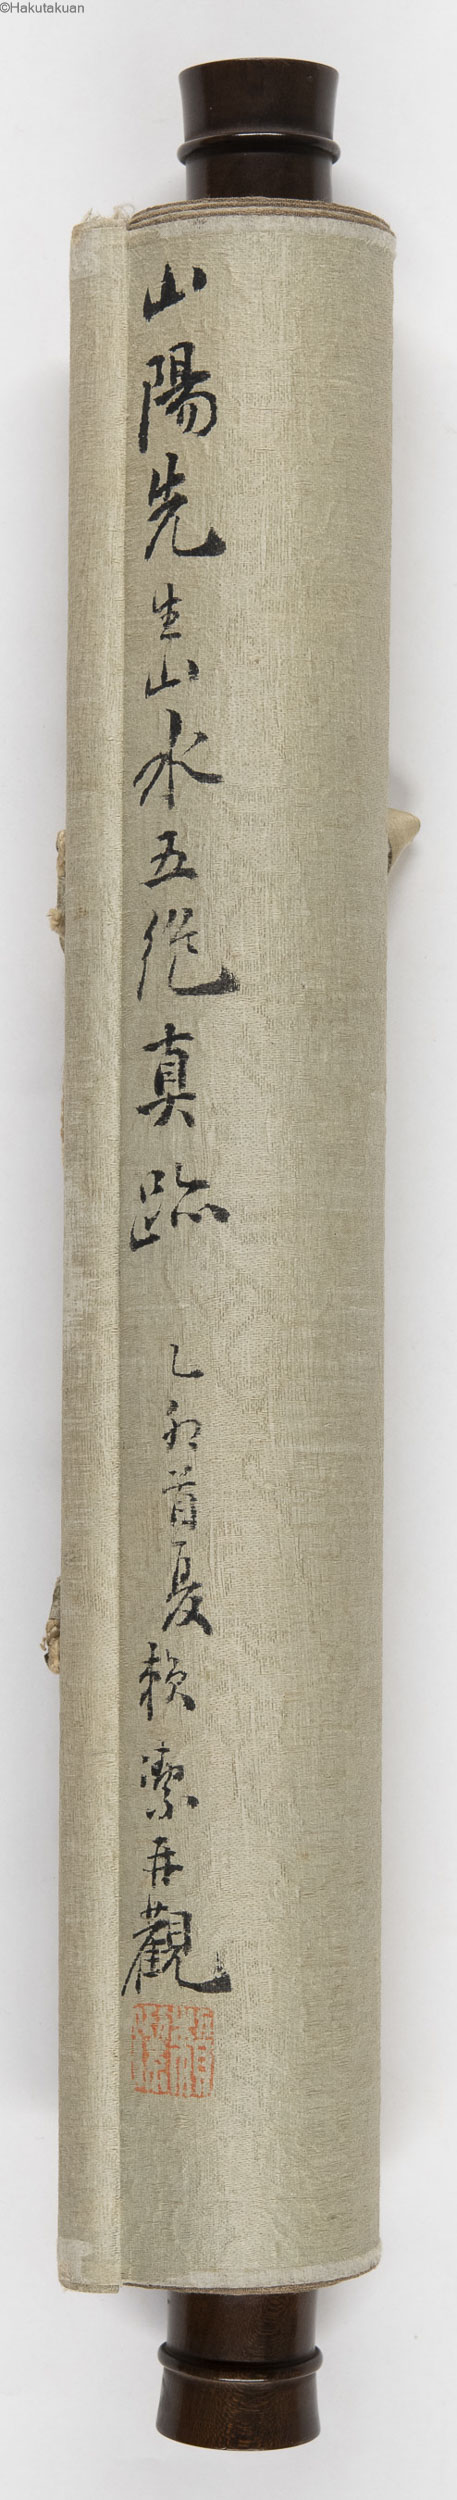 ©Hakutakuan
山陽先生山水五絶真跡
乙卯首夏頼潔再觀